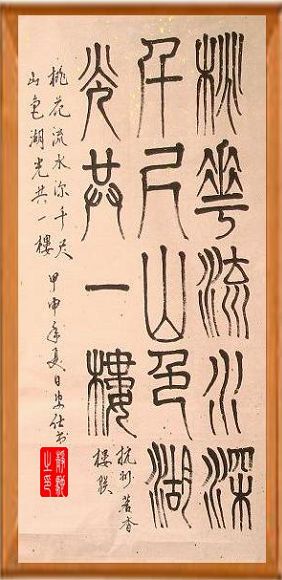 桃華流水深
千尺山色湖
光共一樓
杭州茗香
樓联
桃花流水深千尺
山色湖光共一樓
甲申年夏日